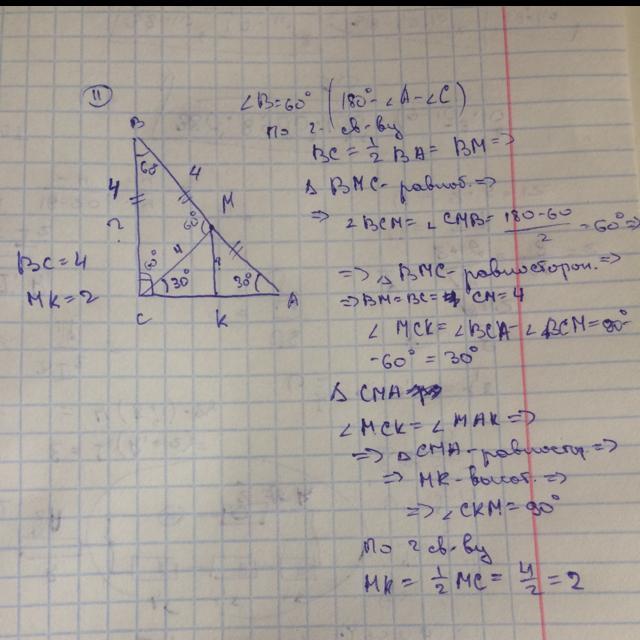 11
∠B=60° (180°-∠A-∠C)
по 2 св-ву
BC = 1/2 BA = BM =>
Δ BMC - равноб. =>
=> ∠BCM = ∠CMB = 180-60/2 = 60° =>
=> Δ BMC - равносторон. =>
=> BM = BC = CM = 4
∠ MCK = ∠BCA - ∠BCM = 90-
-60° = 30°
Δ CMA
∠MCK = ∠MAK =>
=> Δ CMA - равностор. =>
=> MK - высот. =>
=> ∠CKM = 90°
По 2 св-ву
MK = 1/2 MC = 4/2 = 2
B
60°
4
4
M
?
60°
4
60°
30°
30°
C
K
A
BC = 4
MK = 2